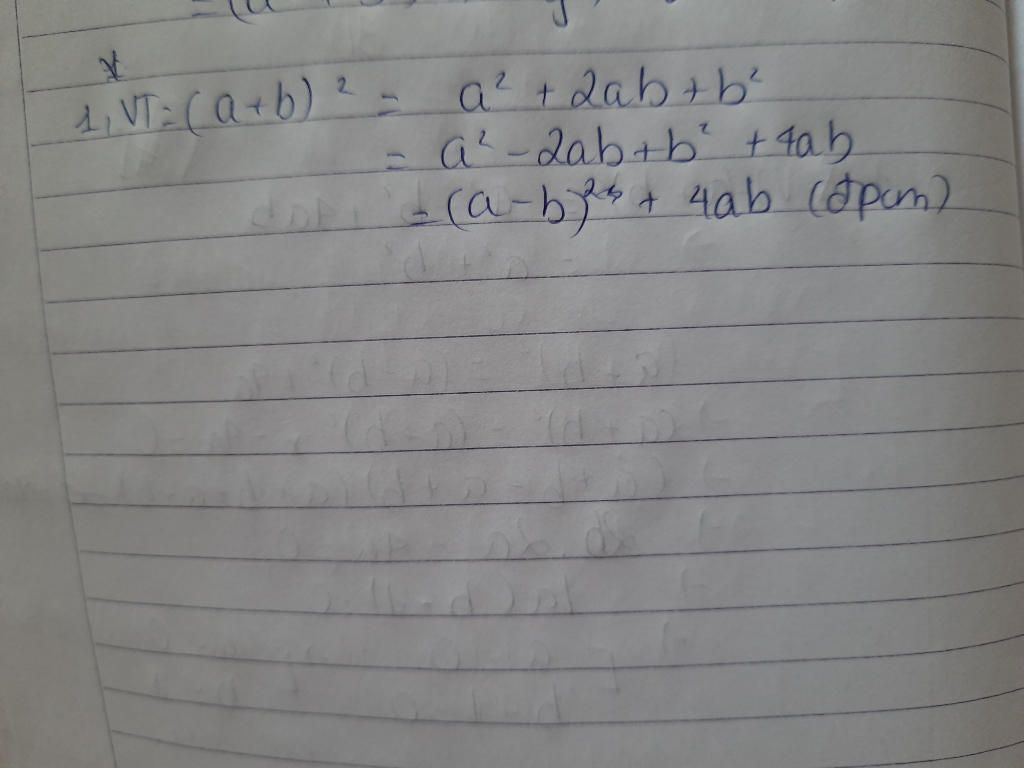 1, VT = (a+b)² = a² + 2ab + b²
= a² - 2ab + b² + 4ab
= (a - b)² + 4ab (đpcm)